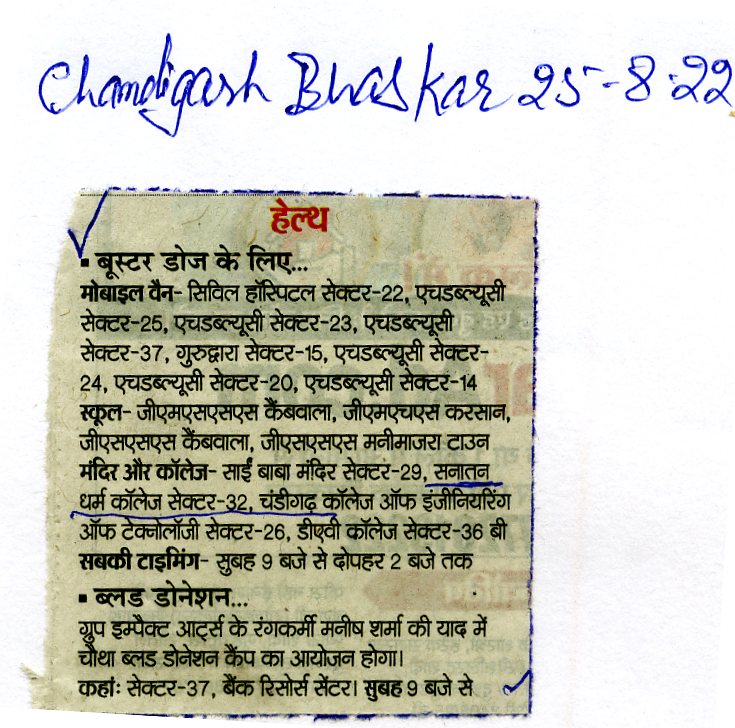 Chandigarh Bhaskar 25-8-22
हेल्थ
▪ बूस्टर डोज के लिए...
मोबाइल वैन- सिविल हॉस्पिटल सेक्टर-22, एचडब्ल्यूसी
सेक्टर-25, एचडब्ल्यूसी सेक्टर-23, एचडब्ल्यूसी
सेक्टर-37, गुरुद्वारा सेक्टर-15, एचडब्ल्यूसी सेक्टर-
24, एचडब्ल्यूसी सेक्टर-20, एचडब्ल्यूसी सेक्टर-14
स्कूल- जीएमएसएसएस कैंबवाला, जीएमएचएस करसान,
जीएसएसएस कैंबवाला, जीएसएसएस मनीमाजरा टाउन
मंदिर और कॉलेज- साईं बाबा मंदिर सेक्टर-29, सनातन
धर्म कॉलेज सेक्टर-32, चंडीगढ़ कॉलेज ऑफ इंजीनियरिंग
ऑफ टेक्नोलॉजी सेक्टर-26, डीएवी कॉलेज सेक्टर-36 बी
सबकी टाइमिंग- सुबह 9 बजे से दोपहर 2 बजे तक
▪ ब्लड डोनेशन...
ग्रुप इम्पैक्ट आर्ट्स के रंगकर्मी मनीष शर्मा की याद में
चौथा ब्लड डोनेशन कैंप का आयोजन होगा।
कहांः सेक्टर-37, बैंक रिसोर्स सेंटर। सुबह 9 बजे से